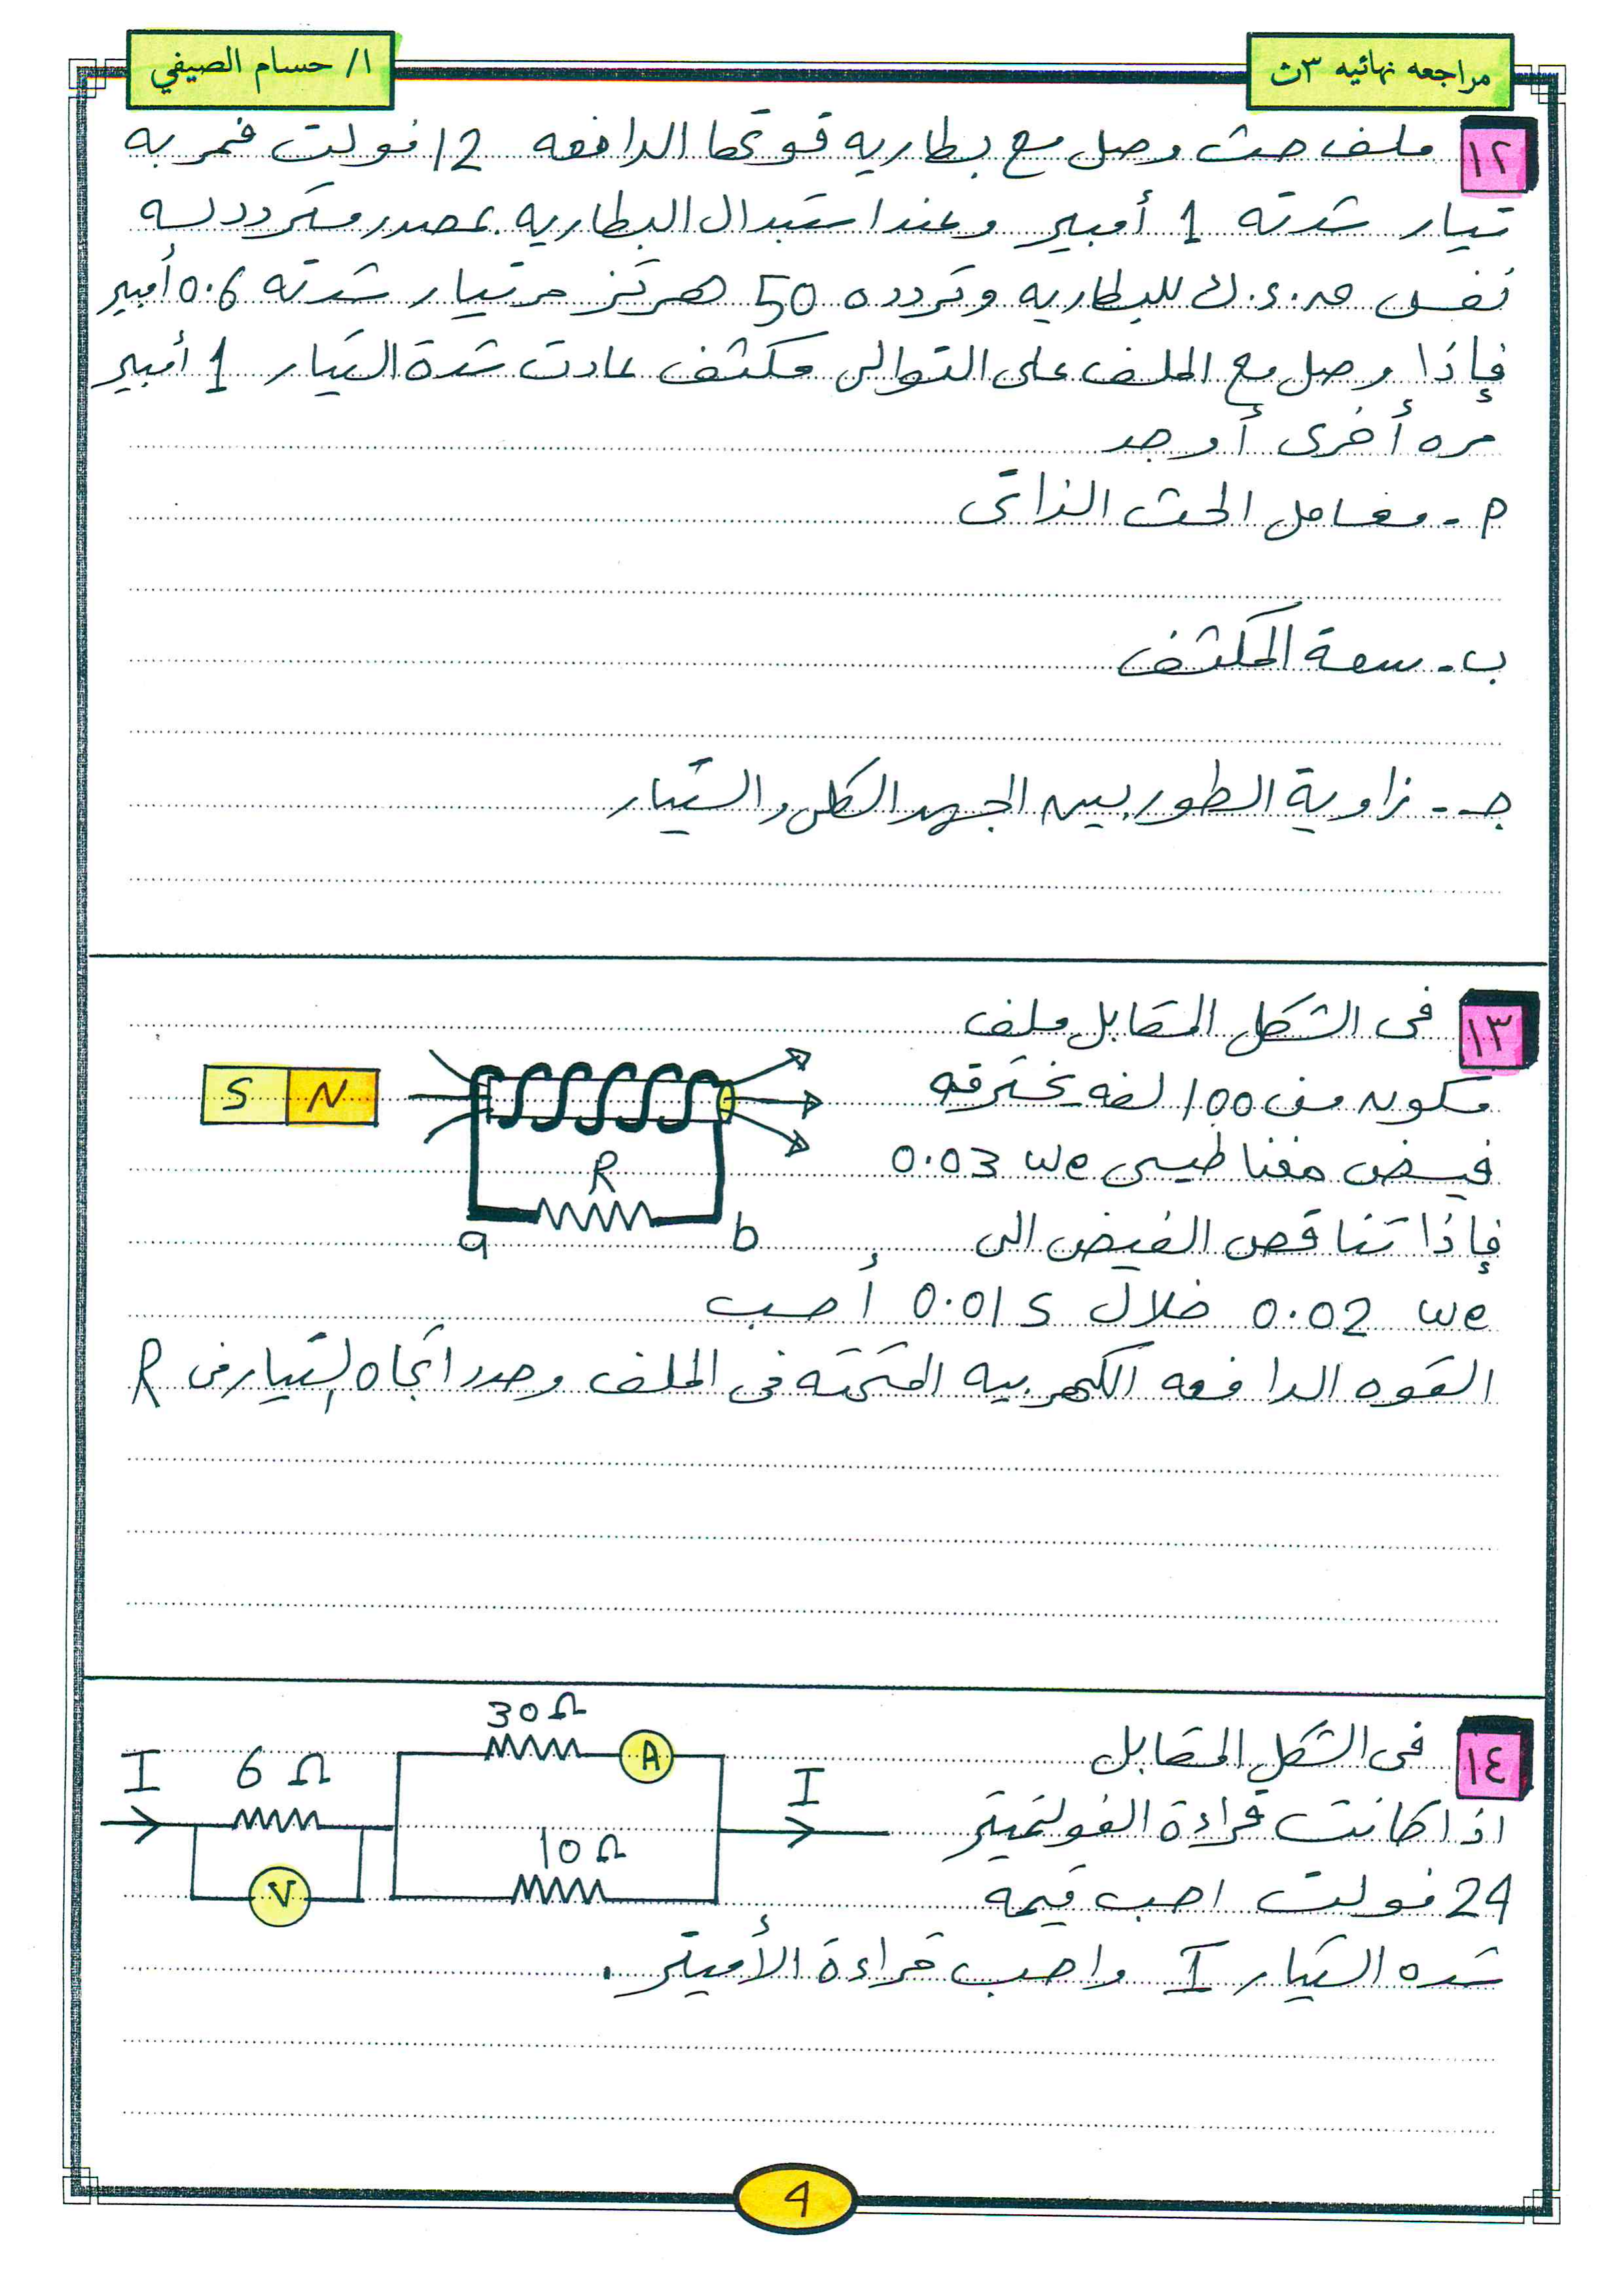 مراجعه نهائيه ٣ث
ا/ حسام الصيفي
١٢ ملف حث وصل مع بطاريه قوتها الدافعه 12 فولت فمر به
تيار شدته 1 أمبير وعند استبدال البطاريه بمصدر متردد له
نفس ق.د.ك للبطاريه وتردده 50 هرتز مر تيار شدته 0.6 أمبير
فإذا وصل مع الملف على التوالى مكثف عادت شدة التيار 1 أمبير
مره أخرى أوجد
م - معامل الحث الذاتى
ب - سعة المكثف
جـ - زاوية الطور بين الجهد الكلى والتيار
١٣ فى الشكل المقابل ملف
مكون من 100 لفه يخترقه
فيض مغناطيسى 0.03 we
فإذا تناقص الفيض الى
0.02 we خلال 0.01 s أحسب
القوه الدافعه الكهربيه المتحثه فى الملف وحدد اتجاه التيار فى R
S N
R
a b
١٤ فى الشكل المقابل
اذا كانت قراءة الفولتميتر
24 فولت احسب قيمه
شده التيار I واحسب قراءة الأميتر .
30 Ω
A
I 6 Ω
I
10 Ω
V
4